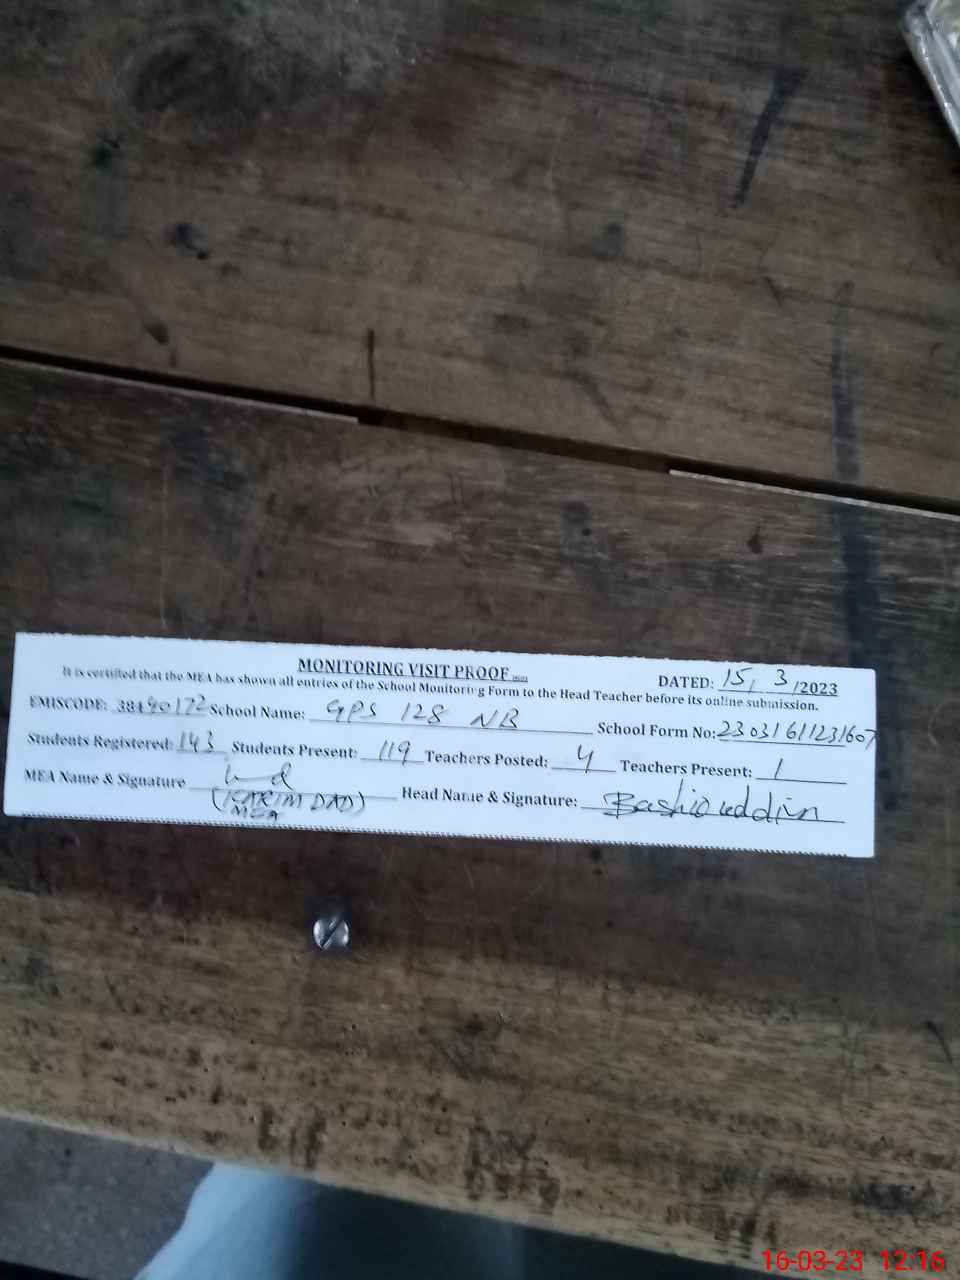 MONITORING VISIT PROOF
DATED: 15, 3 /2023
It is certified that the MEA has shown all entries of the School Monitoring Form to the Head Teacher before its online submission.
EMISCODE: 38490172 School Name: GPS 128 NB School Form No: 230316111231607
Students Registered: 143 Students Present: 119 Teachers Posted: 4 Teachers Present: 1
MEA Name & Signature Head Name & Signature: Bashiouddin
(KARIM DAD)
MEA
16-03-23 12:16